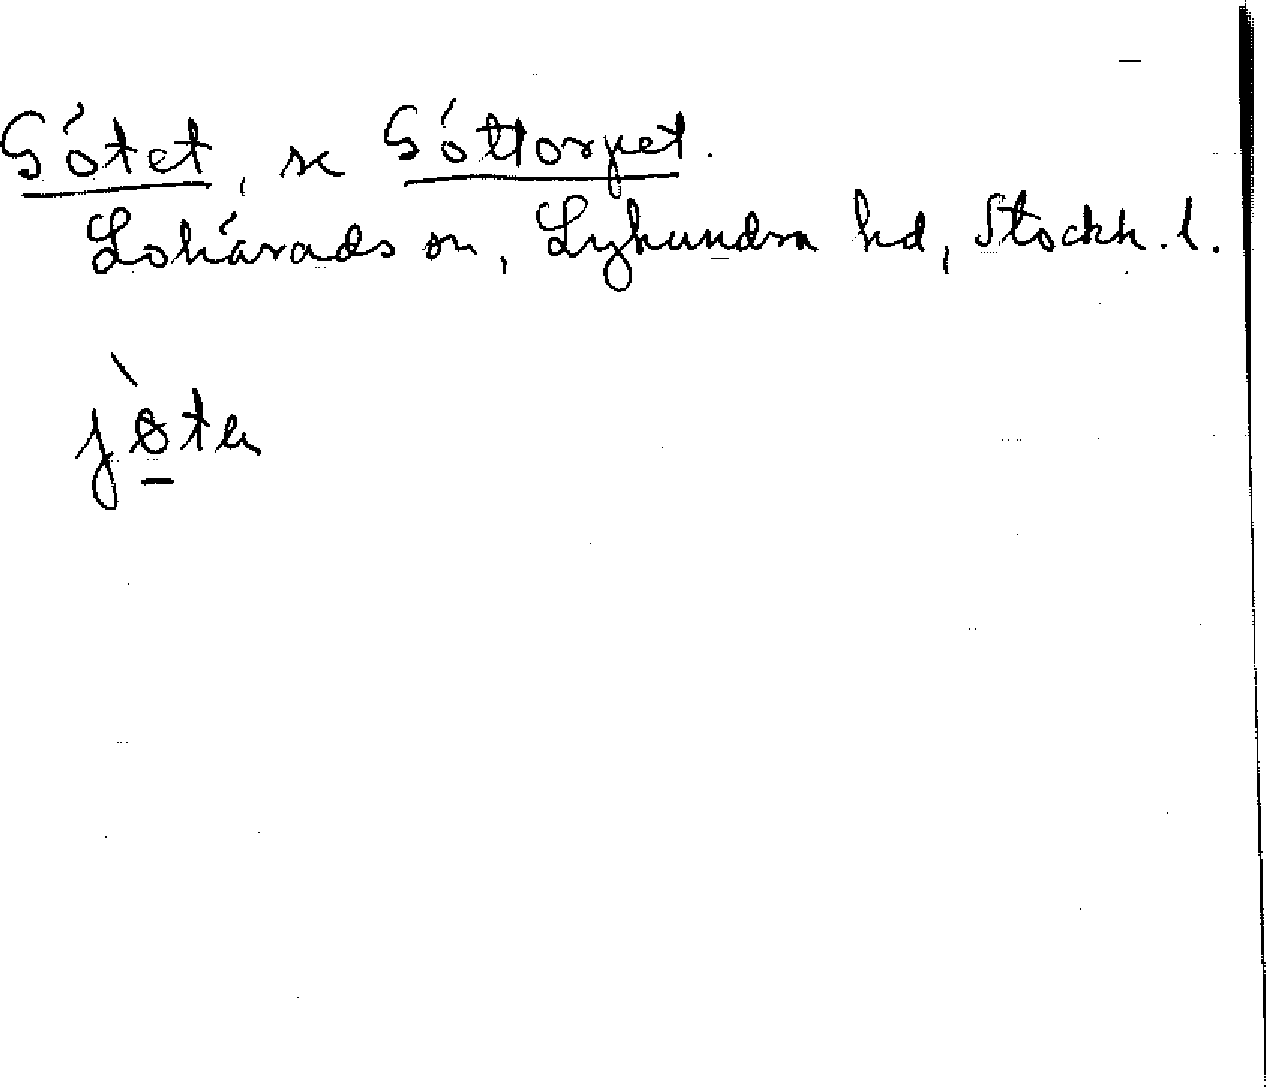 Götet, se Göttorpet.
Lohärads sn, Lyhundra hd, Stockh. l.